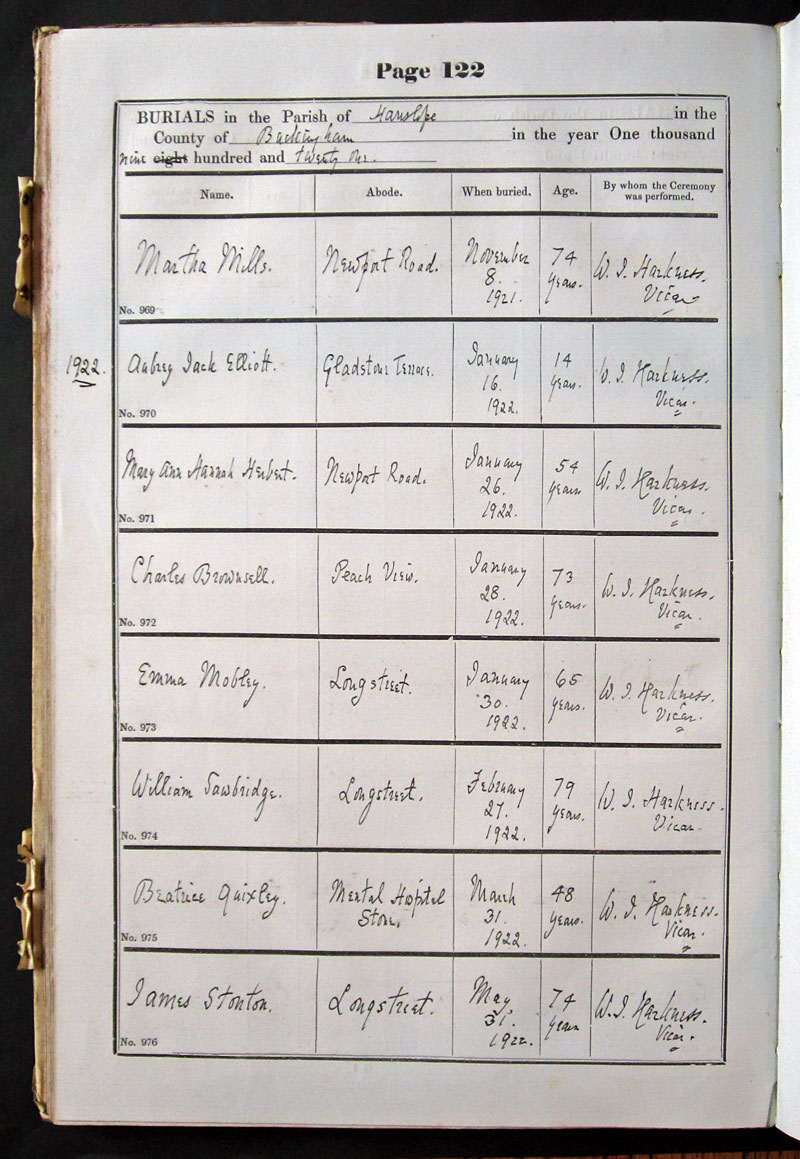 Page 122
BURIALS in the Parish of Hanslope in the
County of Buckingham in the year One thousand
nine eight hundred and twenty one.
Name. Abode. When buried. Age. By whom the Ceremony was performed.
Martha Mills. Newport Road. November 8. 1921. 74 years. W. J. Harkness. Vicar
No. 969
1922.
Aubrey Jack Elliott. Gladstone Terrace. January 16. 1922. 14 years. W. J. Harkness. Vicar.
No. 970
Mary Ann Hannah Herbert. Newport Road. January 26. 1922. 54 years W. J. Harkness. Vicar.
No. 971
Charles Brownsell. Peach View. January 28. 1922. 73 years. W. J. Harkness. Vicar.
No. 972
Emma Mobley. Longstreet. January 30. 1922. 65 years. W. J. Harkness. Vicar.
No. 973
William Sawbridge. Longstreet. February 27. 1922. 79 years. W. J. Harkness. Vicar.
No. 974
Beatrice Quixley. Mental Hospital Stone. March 31. 1922. 48 years. W. J. Harkness. Vicar.
No. 975
James Stonton. Longstreet. May 31. 1922. 74 years W. J. Harkness. Vicar.
No. 976